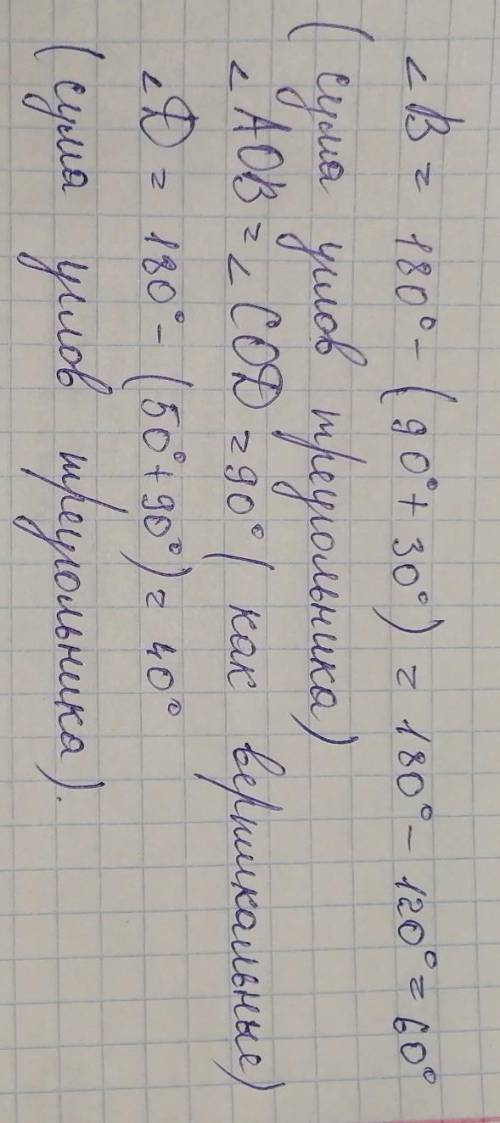 ∠B = 180° - (90° + 30°) = 180° - 120° = 60°
(сума углов треугольника)
∠AOB = ∠COD = 90° (как вертикальные)
∠D = 180° - (50° + 90°) = 40°
(сума углов треугольника).